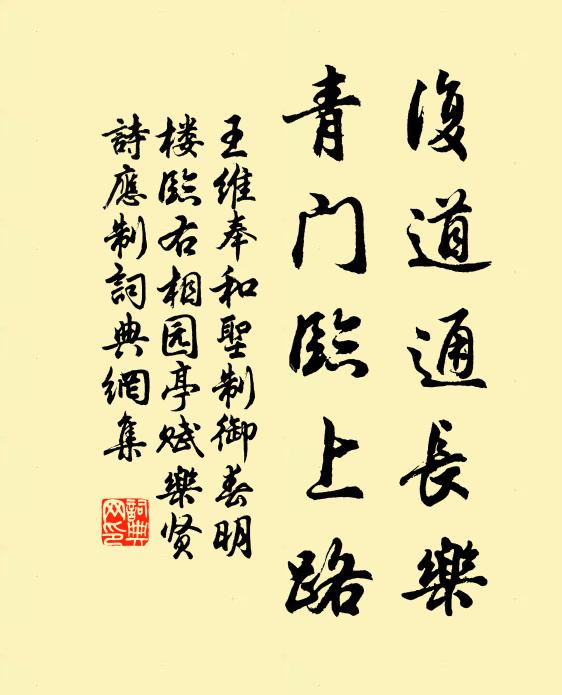 復道通長樂
青門臨上路
王維奉和聖制御春明
楼臨右相园亭赋樂贤
詩應制詞典網集
詞典网印